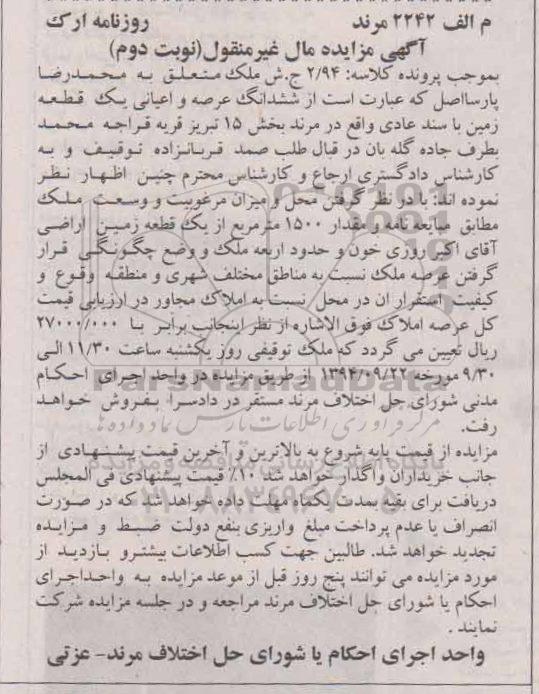 م الف ۲۲۴۲ مرند روزنامه ارک
آگهی مزایده مال غیرمنقول(نوبت دوم)
بموجب پرونده کلاسه: ۲/۹۴ ج.ش ملک متعلق به محمدرضا
پارسااصل که عبارت است از ششدانگ عرصه و اعیانی یک قطعه
زمین با سند عادی واقع در مرند بخش ۱۵ تبریز قریه قراجه محمد
بطرف جاده گله بان در قبال طلب صمد قربانزاده توقیف و به
کارشناس دادگستری ارجاع و کارشناس محترم چنین اظهار نظر
نموده اند: با در نظر گرفتن محل و میزان مرغوبیت و وسعت ملک
مطابق مبایعه نامه و مقدار ۱۵۰۰ مترمربع از یک قطعه زمین اراضی
آقای اکبر روزی خون و حدود اربعه ملک و وضع چگونگی قرار
گرفتن عرصه ملک نسبت به مناطق مختلف شهری و منطقه وقوع و
کیفیت استقرار ان در محل نسبت به املاک مجاور در ارزیابی قیمت
کل عرصه املاک فوق الاشاره از نظر اینجانب برابر با ۲۷۰۰۰/۰۰۰
ریال تعیین می گردد که ملک توقیفی روز یکشنبه ساعت ۱۱/۳۰ الی
۹/۳۰ مورخه ۱۳۹۴/۰۹/۲۲ از طریق مزایده در واحد اجرای احکام
مدنی شورای حل اختلاف مرند مستقر در دادسرا بفروش خواهد
رفت.
مزایده از قیمت پایه شروع به بالاترین و آخرین قیمت پیشنهادی از
جانب خریداران واگذار خواهد شد ۱۰٪ قیمت پیشنهادی فی المجلس
دریافت برای بقیه بمدت یکماه مهلت داده خواهد شد که در صورت
انصراف یا عدم پرداخت مبلغ واریزی بنفع دولت ضبط و مزایده
تجدید خواهد شد. طالبین جهت کسب اطلاعات بیشترو بازدید از
مورد مزایده می توانند پنج روز قبل از موعد مزایده به واحداجرای
احکام یا شورای حل اختلاف مرند مراجعه و در جلسه مزایده شرکت
نمایند .
واحد اجرای احکام یا شورای حل اختلاف مرند- عزتی
ParsNamadData
مرکز فرآوری اطلاعات پارس نماد داده ها
پایگاه اطلاع رسانی مناقصه و مزایده